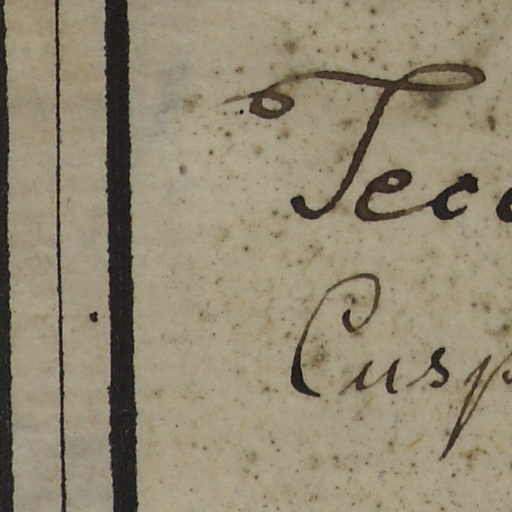 Tecc
Cusp